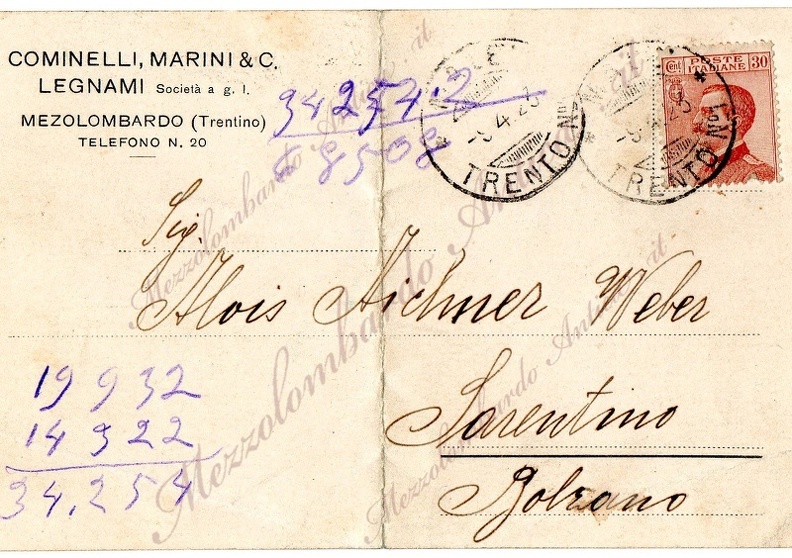 COMINELLI, MARINI & C.
LEGNAMI Società a g. l.
MEZOLOMBARDO (Trentino)
TELEFONO N. 20
34 254.2
68508
-5.4.23
TRENTO
-5.4.23
TRENTO
POSTE ITALIANE
Cent 30
Sig.
Alois Aichner Weber
Sarentino
Bolzano
19 932
14 322
34.254
Mezzolombardo Antica.it
Mezzolombardo Antica.it